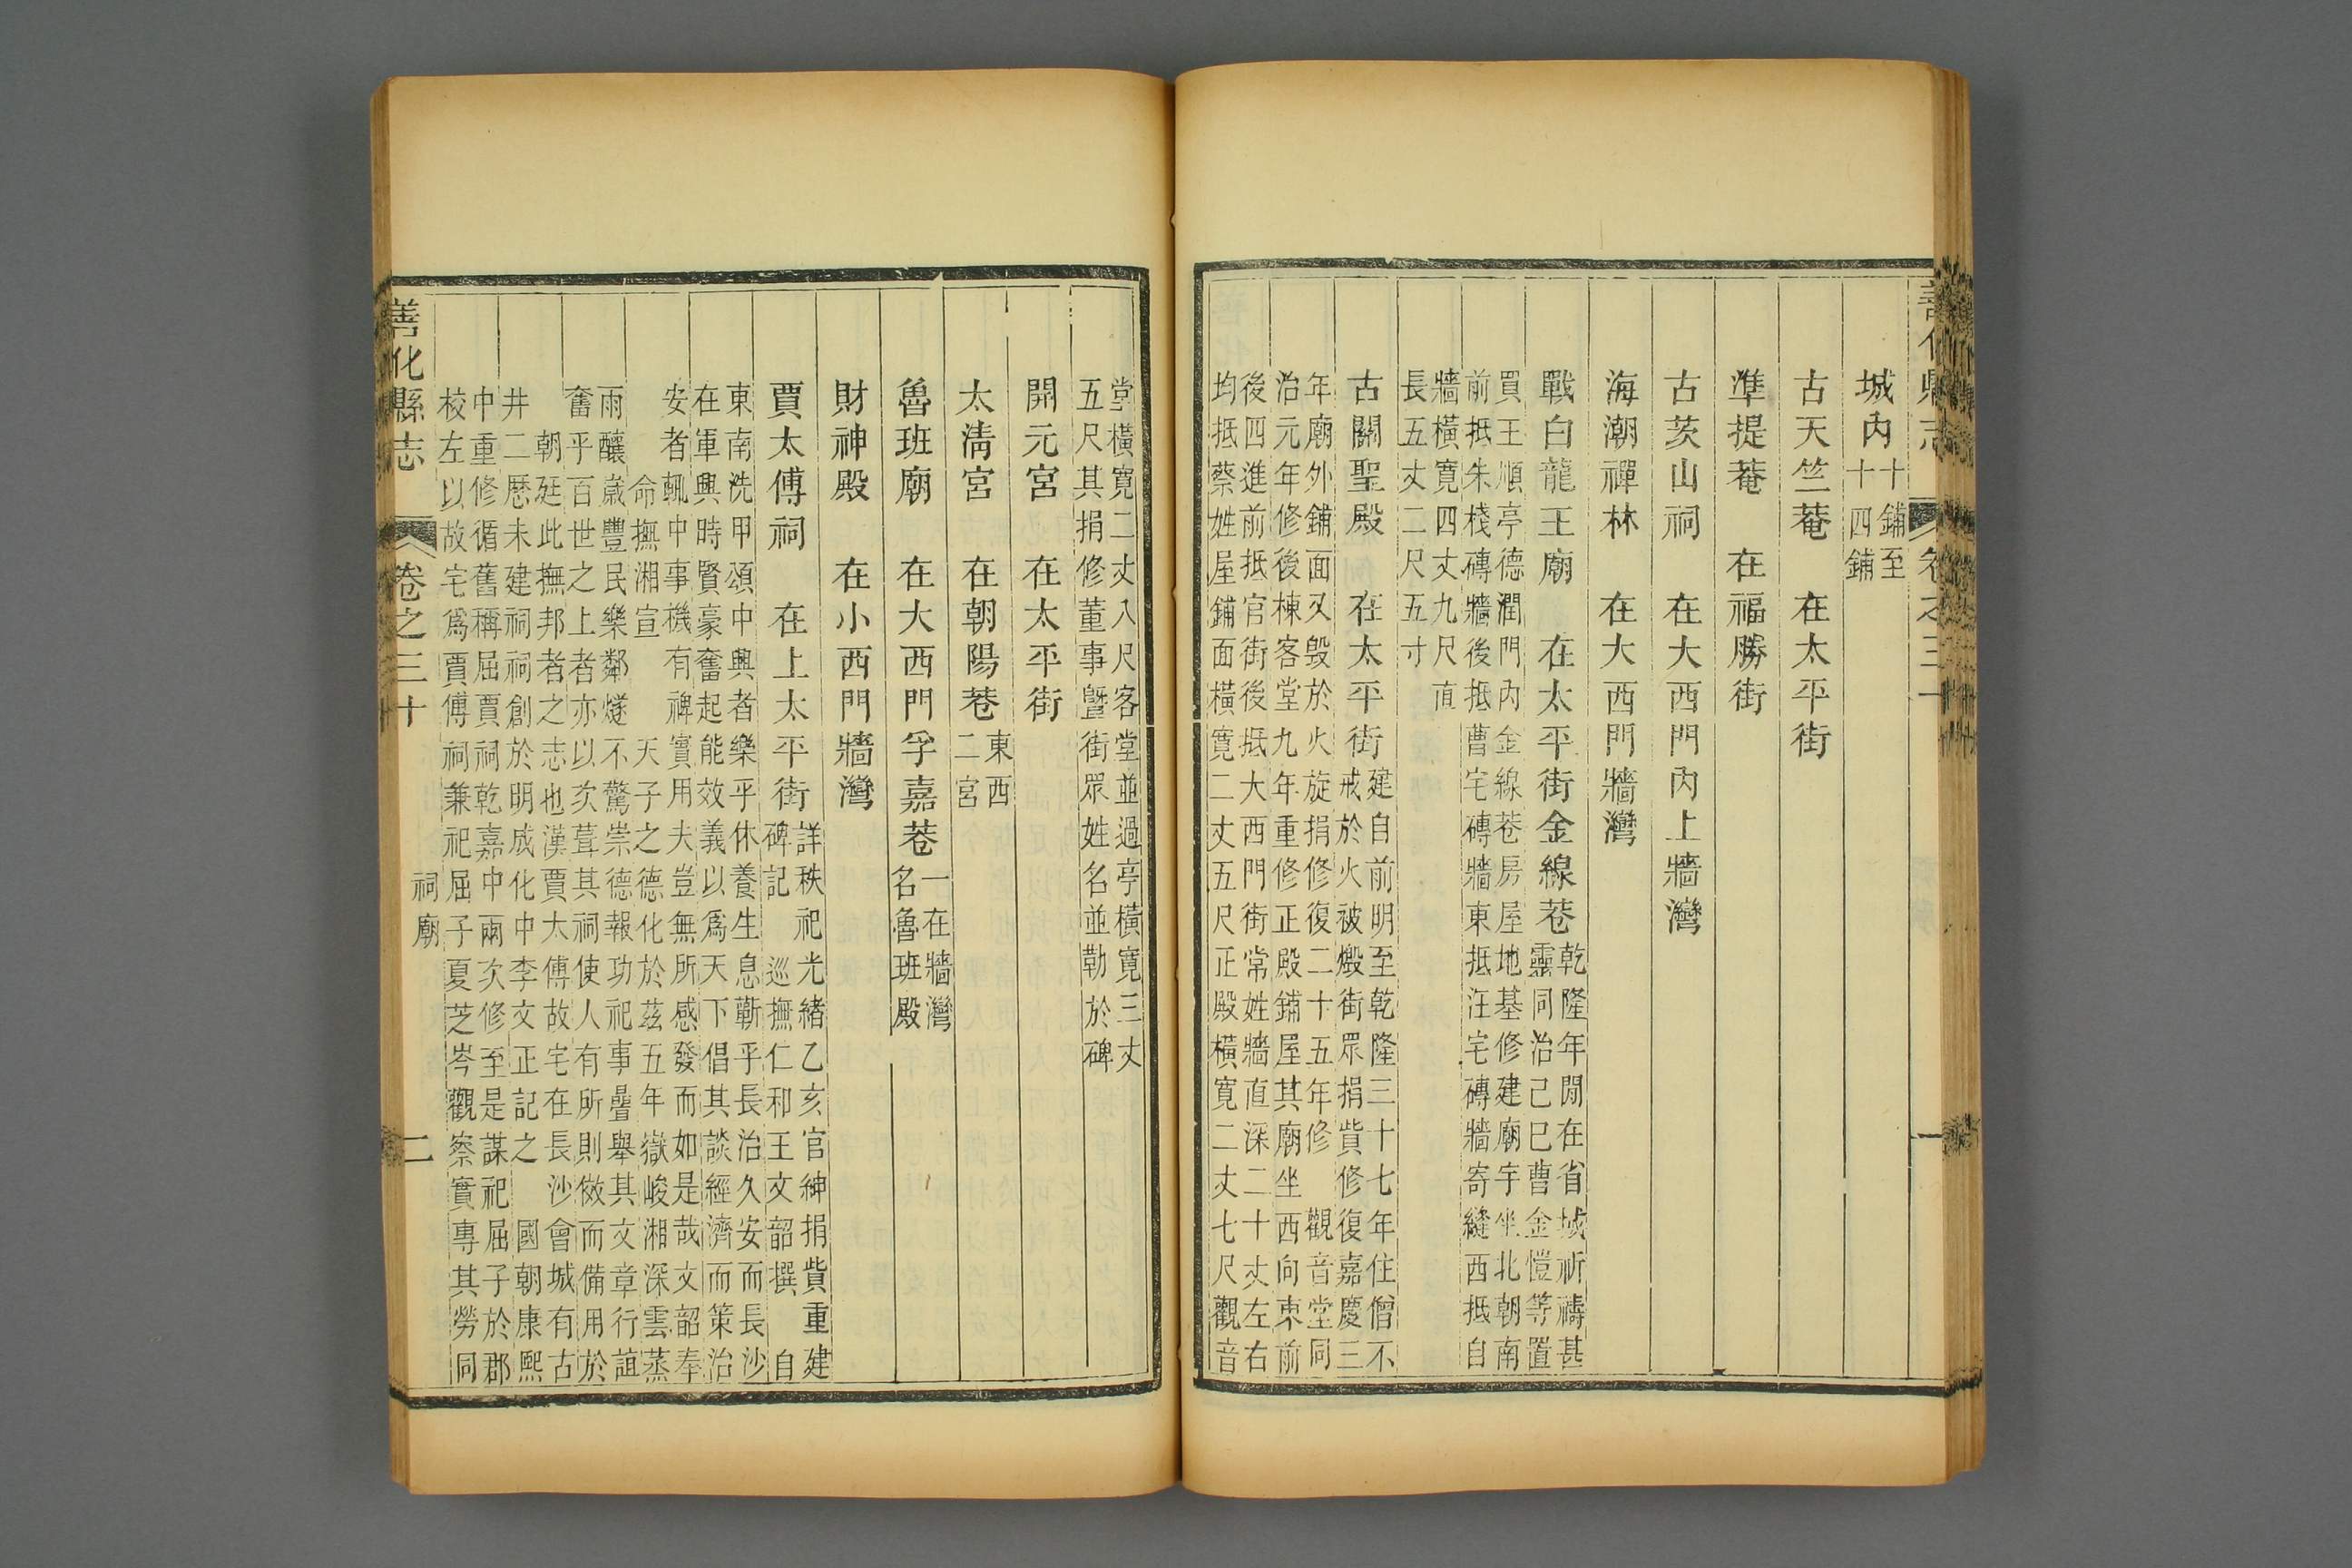 善化縣志 卷之三十 一
城內十鋪至
十四鋪
古天竺菴 在太平街
準提菴 在福勝街
古茨山祠 在大西門內上牆灣
海潮禪林 在大西門牆灣
戰白龍王廟 在太平街金線巷乾隆年間在省城祈禱甚
靈同治己巳曹金愷等置
買王順亭德潤門內金線巷房屋地基修建廟宇坐北朝南
前抵朱棧磚牆後抵曹宅磚牆東抵汪宅磚牆寄縫西抵自
牆橫寬四丈九尺直
長五丈二尺五寸
古關聖殿 在太平街建自前明至乾隆三十七年住僧不
戒於火被燬街眾捐貲修復嘉慶三
年廟外鋪面又毀於火旋捐修復二十五年修 觀音堂同
治元年修後棟客堂九年重修正殿鋪屋其廟坐西向東前
後四進前抵官街後抵大西門街常姓牆直深二十丈左右
均抵蔡姓屋鋪面橫寬二丈五尺正殿橫寬二丈七尺觀音
堂橫寬二丈八尺客堂並過亭橫寬三丈
五尺其捐修董事暨街眾姓名並勒於碑
開元宮 在太平街
太清宮 在朝陽巷東西
二宮
魯班廟 在大西門孚嘉巷一在牆灣
名魯班殿
財神殿 在小西門牆灣
賈太傅祠 在上太平街詳秩祀光緒乙亥官紳捐貲重建
碑記 巡撫仁和王文韶撰 自
東南洗甲頌中興者樂乎休養生息蘄乎長治久安而長沙
在軍興時賢豪奮起能效義以為天下倡其談經濟而策治
安者輒中事機有裨實用夫豈無所感發而如是哉文韶奉
命撫湘宣 天子之德化於茲五年嶽峻湘深雲蒸
雨釀歲豐民樂鄰燧不驚崇德報功祀事舉其文章行誼
奮乎百世之上者亦以次葺其祠使人有所則傚而備用於
朝廷此撫邦者之志也漢賈太傅故宅在長沙會城有古
井二歷未建祠祠創於明成化中李文正記之 國朝康熙
中重修循舊稱屈賈祠乾嘉中兩次修至是謀祀屈子於郡
校左以故宅為賈傅祠兼祀屈子夏芝岑觀察實專其勞同
善化縣志 卷之三十 祠廟 二